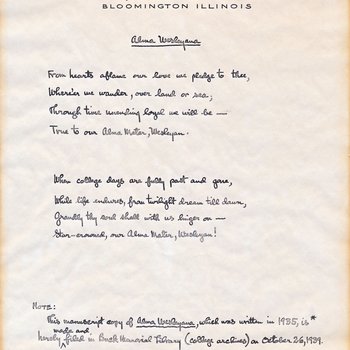 BLOOMINGTON ILLINOIS
Alma Wesleyana
From hearts aflame our love we pledge to thee,
Where'er we wander, over land or sea;
Through time unending loyal we will be —
True to our Alma Mater, Wesleyan.
When college days are fully past and gone,
While life endures, from twilight dream till dawn,
Grandly thy soul shall with us linger on —
Star-crowned, our Alma Mater, Wesleyan!
NOTE:
This manuscript copy of Alma Wesleyana, which was written in 1935, is*
made and
hereby filed in Buck Memorial Library (college archives) on October 26, 1939.